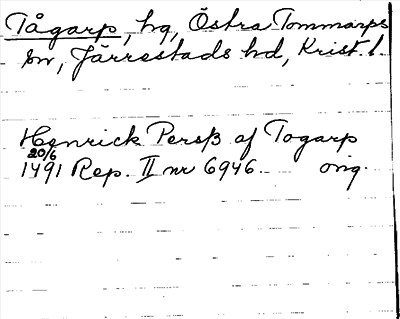 Tågarp, hg, Östra Tommarps
sn, Järrestads hd, Krist. l.
Henrick Persß af Togarp
20/6
1491 Rep. II nr 6946. orig.